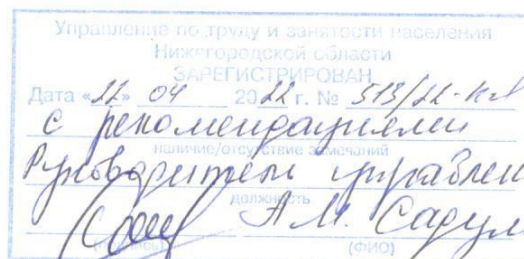 Управление по труду и занятости населения
Нижегородской области
ЗАРЕГИСТРИРОВАН
Дата «22» 04 2022 г. № 513/22-КД
с рекомендациями
наличие/отсутствие замечаний
Руководитель управлен
должность
А.М. Садул
(подпись) (ФИО)